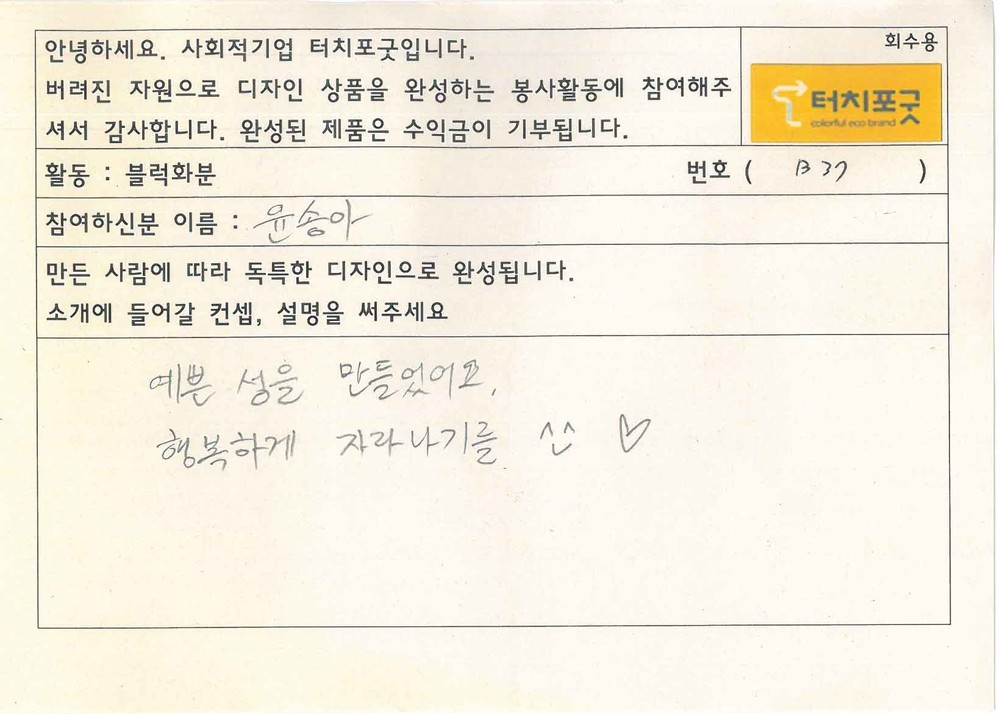 안녕하세요. 사회적기업 터치포굿입니다.
버려진 자원으로 디자인 상품을 완성하는 봉사활동에 참여해주
셔서 감사합니다. 완성된 제품은 수익금이 기부됩니다.
회수용
터치포굿
colorful eco brand
활동 : 블럭화분
번호 ( B 37 )
참여하신분 이름 : 윤송아
만든 사람에 따라 독특한 디자인으로 완성됩니다.
소개에 들어갈 컨셉, 설명을 써주세요
예쁜 성을 만들었어요.
행복하게 자라나기를 ^^ ♡